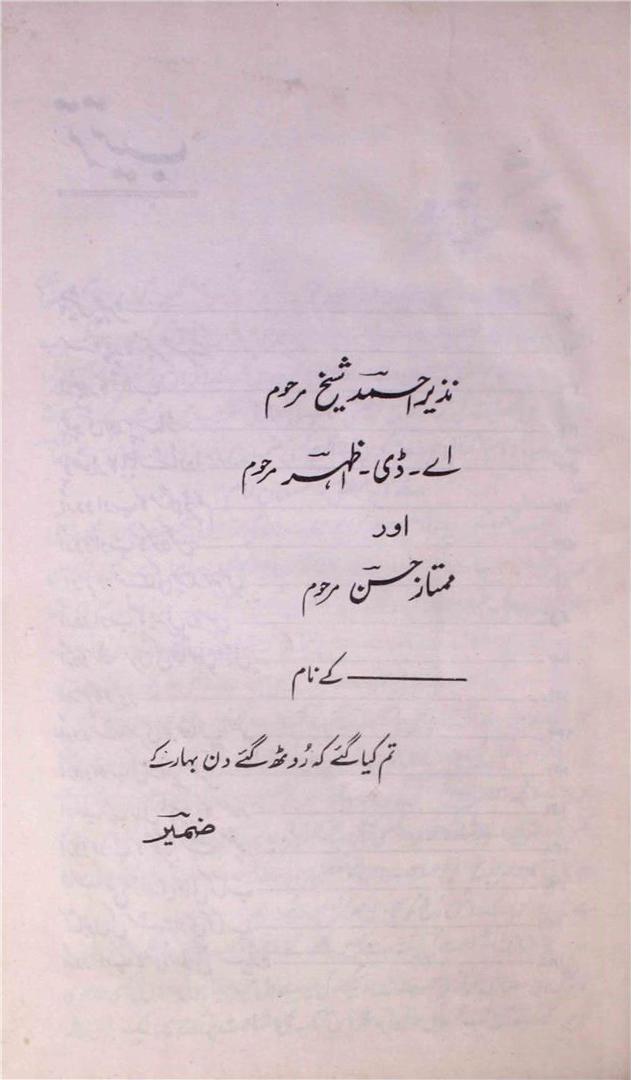 نذیر احمد شیخ مرحوم
اے۔ ڈی۔ اظہر مرحوم
اور
ممتاز حسن مرحوم
ــــــــــــ کے نام
تم کیا گئے کہ رُوٹھ گئے دن بہار کے
ضمیر